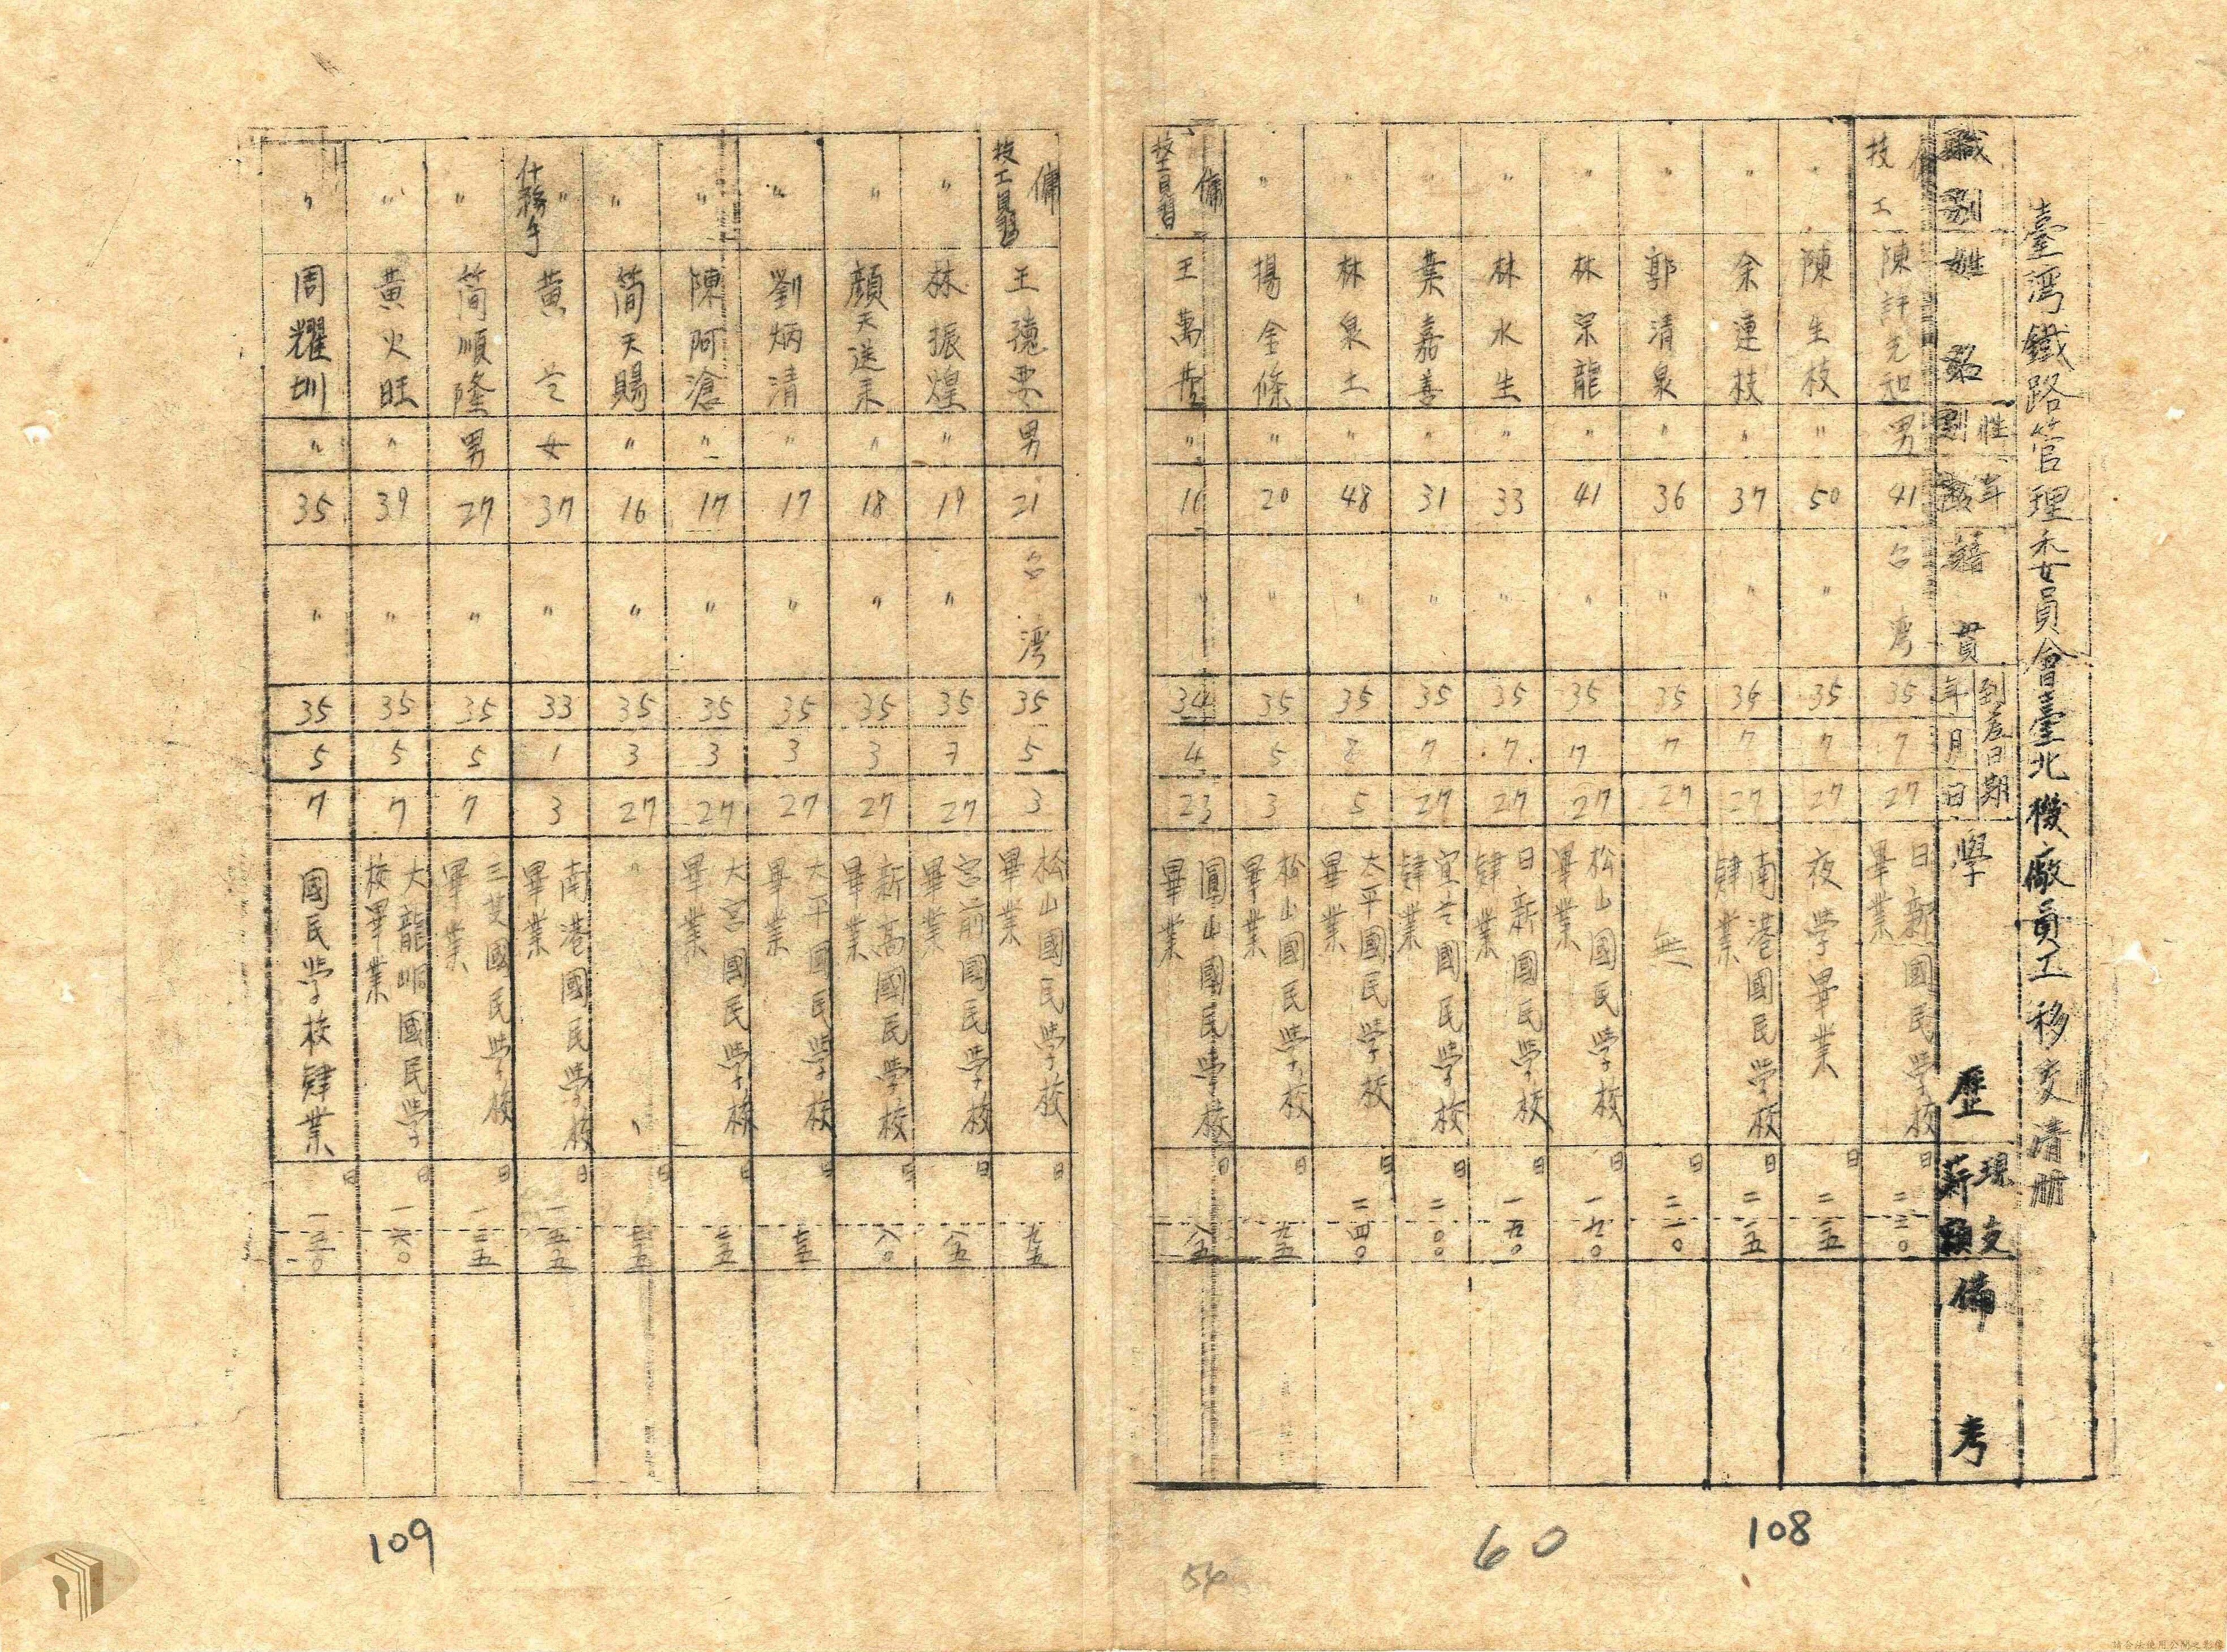 臺灣鐵路管理委員會臺北機廠員工移交清册
職別 姓名 性別 年齡 籍貫 到差日期 年 月 日 學歷 現支薪額 備考
傭 技工 陳許克和 男 41 台灣 35 7 27 日新國民學校畢業 日 二三〇
〃 陳生枝 〃 50 〃 35 7 27 夜學畢業 日 二二五
〃 余連枝 〃 37 〃 35 7 27 南港國民学校肄業 日 二一五
〃 郭清泉 〃 36 〃 35 7 27 無 日 二一〇
〃 林宗龍 〃 41 〃 35 7 27 松山國民学校畢業 日 一九〇
〃 林水生 〃 33 〃 35 7 27 日新國民学校肄業 日 一五〇
〃 葉嘉善 〃 31 〃 35 7 27 宜兰國民学校肄業 日 二〇〇
〃 林泉土 〃 48 〃 35 5 太平國民学校畢業 日 二四〇
〃 楊金條 〃 20 〃 35 5 3 松山國民學校畢業 日 九五
傭 技工見習 王萬 〃 16 〃 34 4 23 圓山國民學校畢業 日 八五
傭 技工見習 王德要 男 21 台灣 35 5 3 松山國民学校畢業 日 九五
〃 林振煌 〃 19 〃 35 7 27 宮前國民学校畢業 日 八五
〃 顏天送來 〃 18 〃 35 3 27 新高國民学校畢業 日 八〇
〃 劉炳清 〃 17 〃 35 3 27 太平國民学校畢業 日 七五
〃 陳阿滄 〃 17 〃 35 3 27 大宮國民学校畢業 日 七五
〃 簡天賜 〃 16 〃 35 3 27 〃 日 七五
〃 什務手 黃兰 女 37 〃 33 1 3 南港國民学校畢業 日 一五五
〃 簡順隆 男 27 〃 35 5 7 三芝國民学校畢業 日 一三五
〃 黃火旺 〃 39 〃 35 5 7 大龍峒國民学校畢業 日 一六〇
〃 周耀圳 〃 35 〃 35 5 7 國民学校肄業 日 一三〇
108
60
54
109